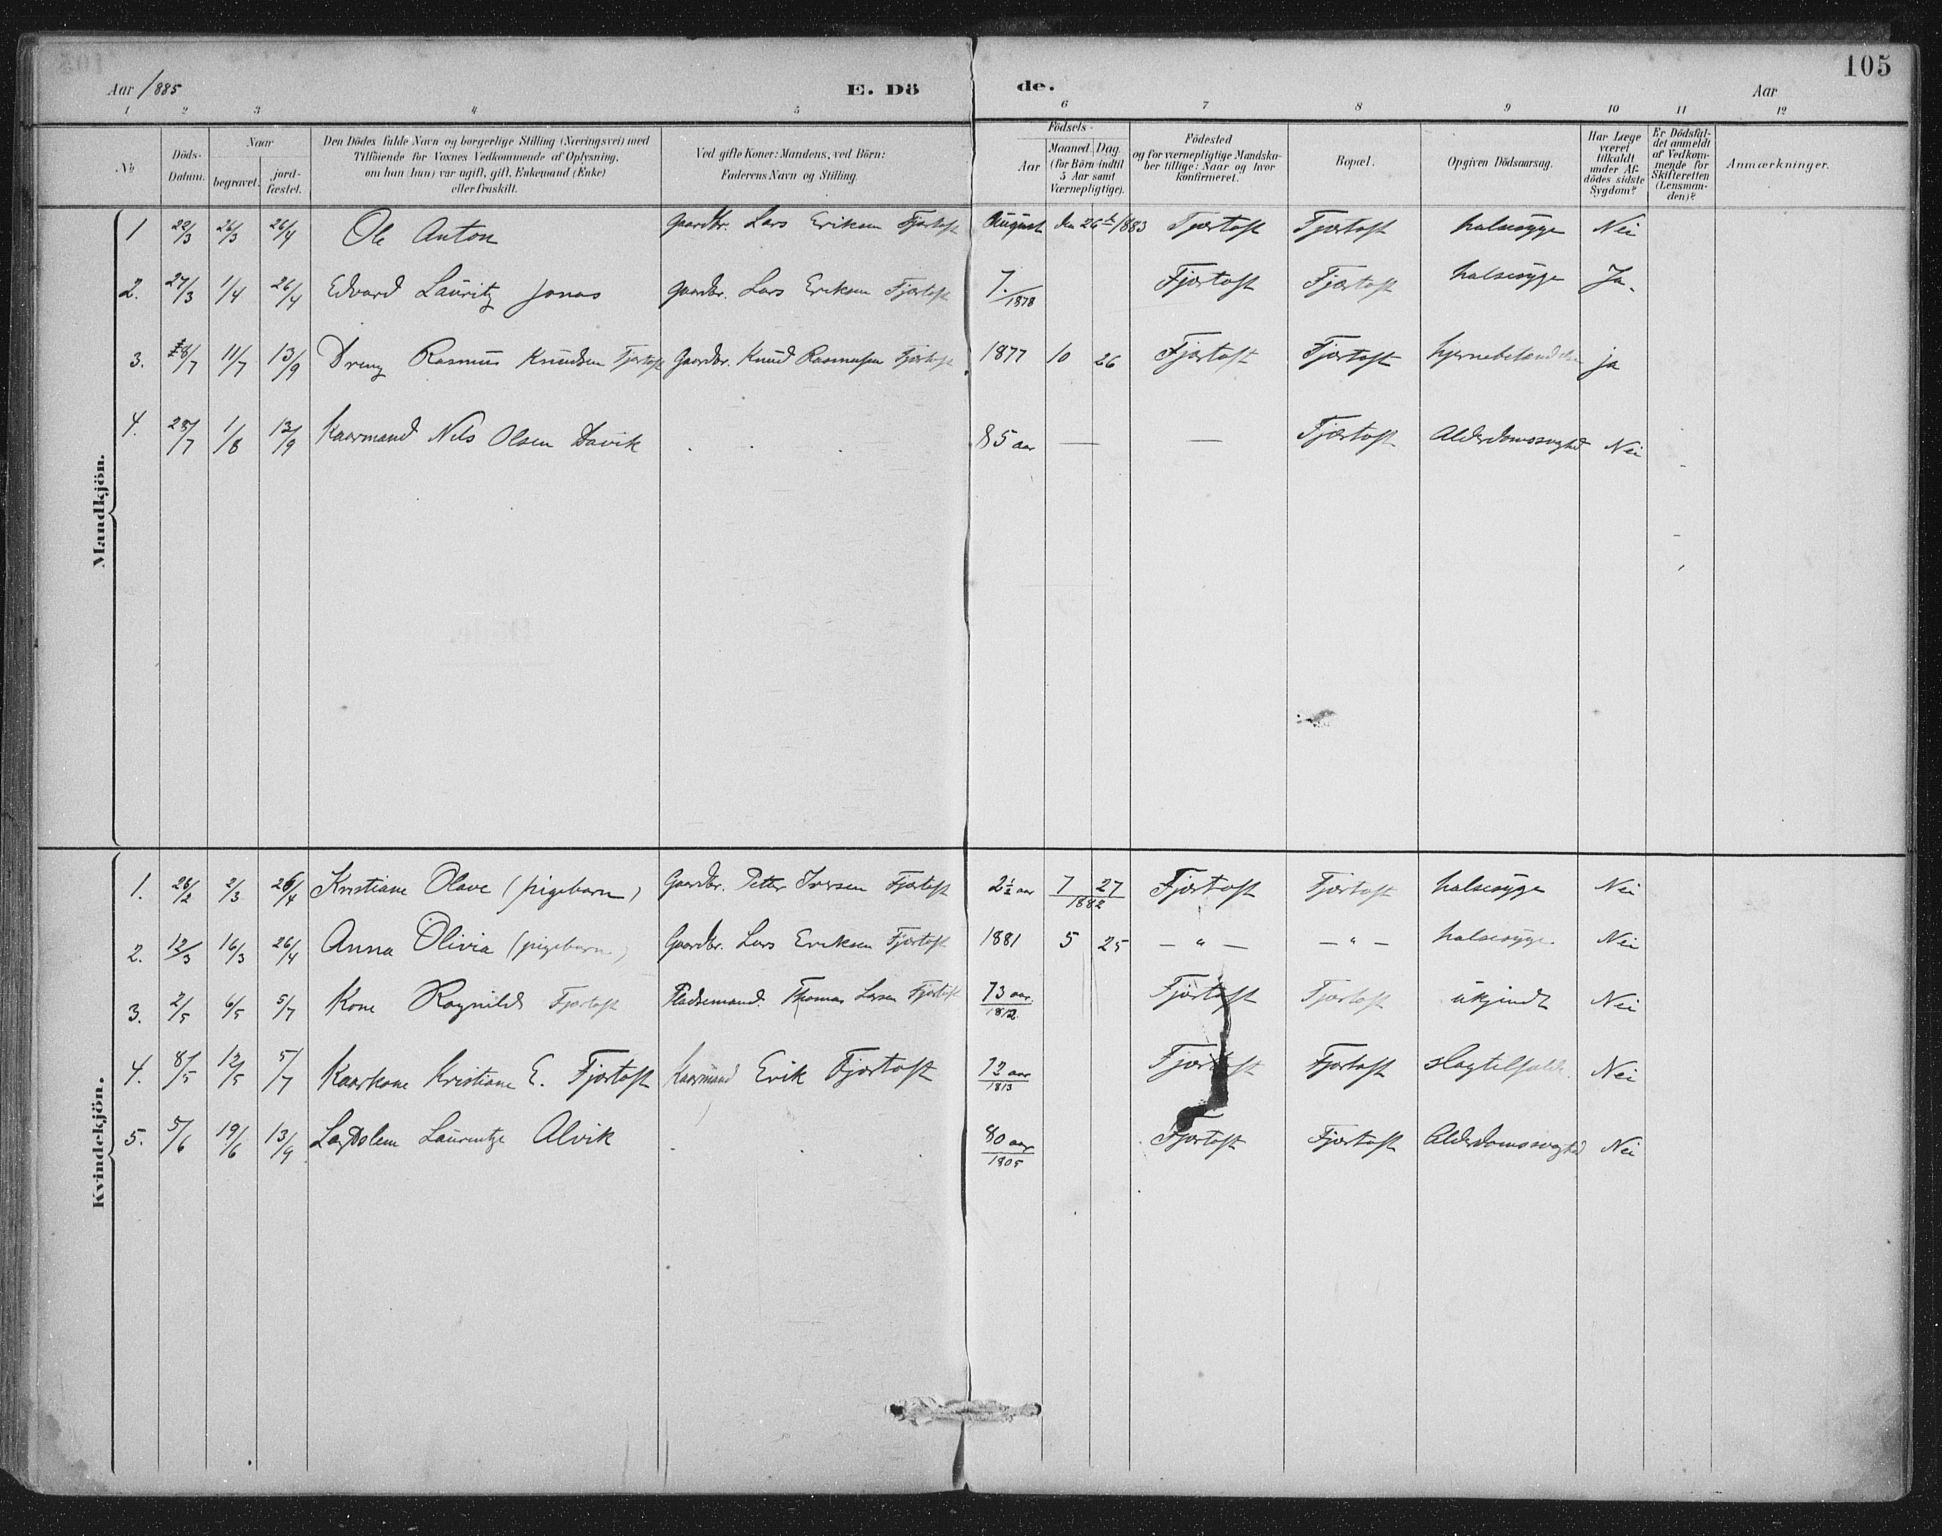 105
Aar 1885 E. Dö de. Aar
1 2 3 4 5 6 7 8 9 10 11 12
No
Döds-Datum.
Naar
begravet.
jordfæstet.
Den Dödes fulde Navn og borgerlige Stilling (Næringsvei) med
Tilföiende for Voxnes Vedkommende af Oplysning,
om han (hun) var ugift, gift, Enkemand (Enke)
eller fraskilt.
Ved gifte Koner: Mandens, ved Börn:
Faderens Navn og Stilling.
Födsels-
Aar
Maaned. Dag
(for Börn indtil
5 Aar samt
Værnepligtige).
Födested
og for værnepligtige Mandskaber tillige: Naar og hvor
konfirmeret.
Bopæl.
Opgiven Dödsaarsag.
Har Læge
været
tilkaldt
under Afdödes sidste
Sygdom?
Er Dödsfaldet anmeldt
af Vedkommende for
Skifteretten
(Lensmanden)?
Anmærkninger.
Mandkjön.
1 22/3 26/3 26/4 Ole Anton Gaardbr. Lars Eriksen Fjærtoft August den 26 1883 Fjærtoft Fjærtoft halssyge Nei
2. 27/3 1/4 26/4 Edvard Lauritz Jonas Gaardbr. Lars Eriksen Fjærtoft 7/1878 Fjærtoft Fjærtoft halssyge Ja.
3. 8/7 11/7 13/9 Dreng Rasmus Knudsen Fjærtoft Gaardbr. Knud Rasmussen Fjærtoft 1877 10 26 Fjærtoft Fjærtoft hjernebetændelse ja
4. 28/7 1/8 13/9 Kaarmand Nils Olsen Davik 85 aar — — Fjærtoft Alderdomssvaghed Nei
Kvindekjön.
1. 26/2 2/3 26/4 Kristiane Olave (pigebarn) Gaardbr. Petter Iversen Fjærtoft 2½ aar 7 27 1882 Fjærtoft Fjærtoft halssyge Nei
2. 12/3 16/3 26/4 Anna Olivia (pigebarn) Gaardbr. Lars Eriksen Fjærtoft 1881 5 25 — " — — " — halssyge. Nei
3. 2/5 6/5 5/7 Kone Ragnild Fjærtoft Pladsemand. Thomas Larsen Fjærtoft 73 aar 1812 Fjærtoft Fjærtoft ukjendt Nei
4. 8/5 12/5 5/7 Kaarkone Kristiane E. Fjærtoft Kaarmand Erik Fjærtoft 72 aar 1813 Fjærtoft Fjærtoft slagtilfælde. Nei
5. 5/6 19/6 13/9 Laurentze Alvik 80 aar 1805 Fjærtoft Fjærtoft Alderdomssvaghed Nei